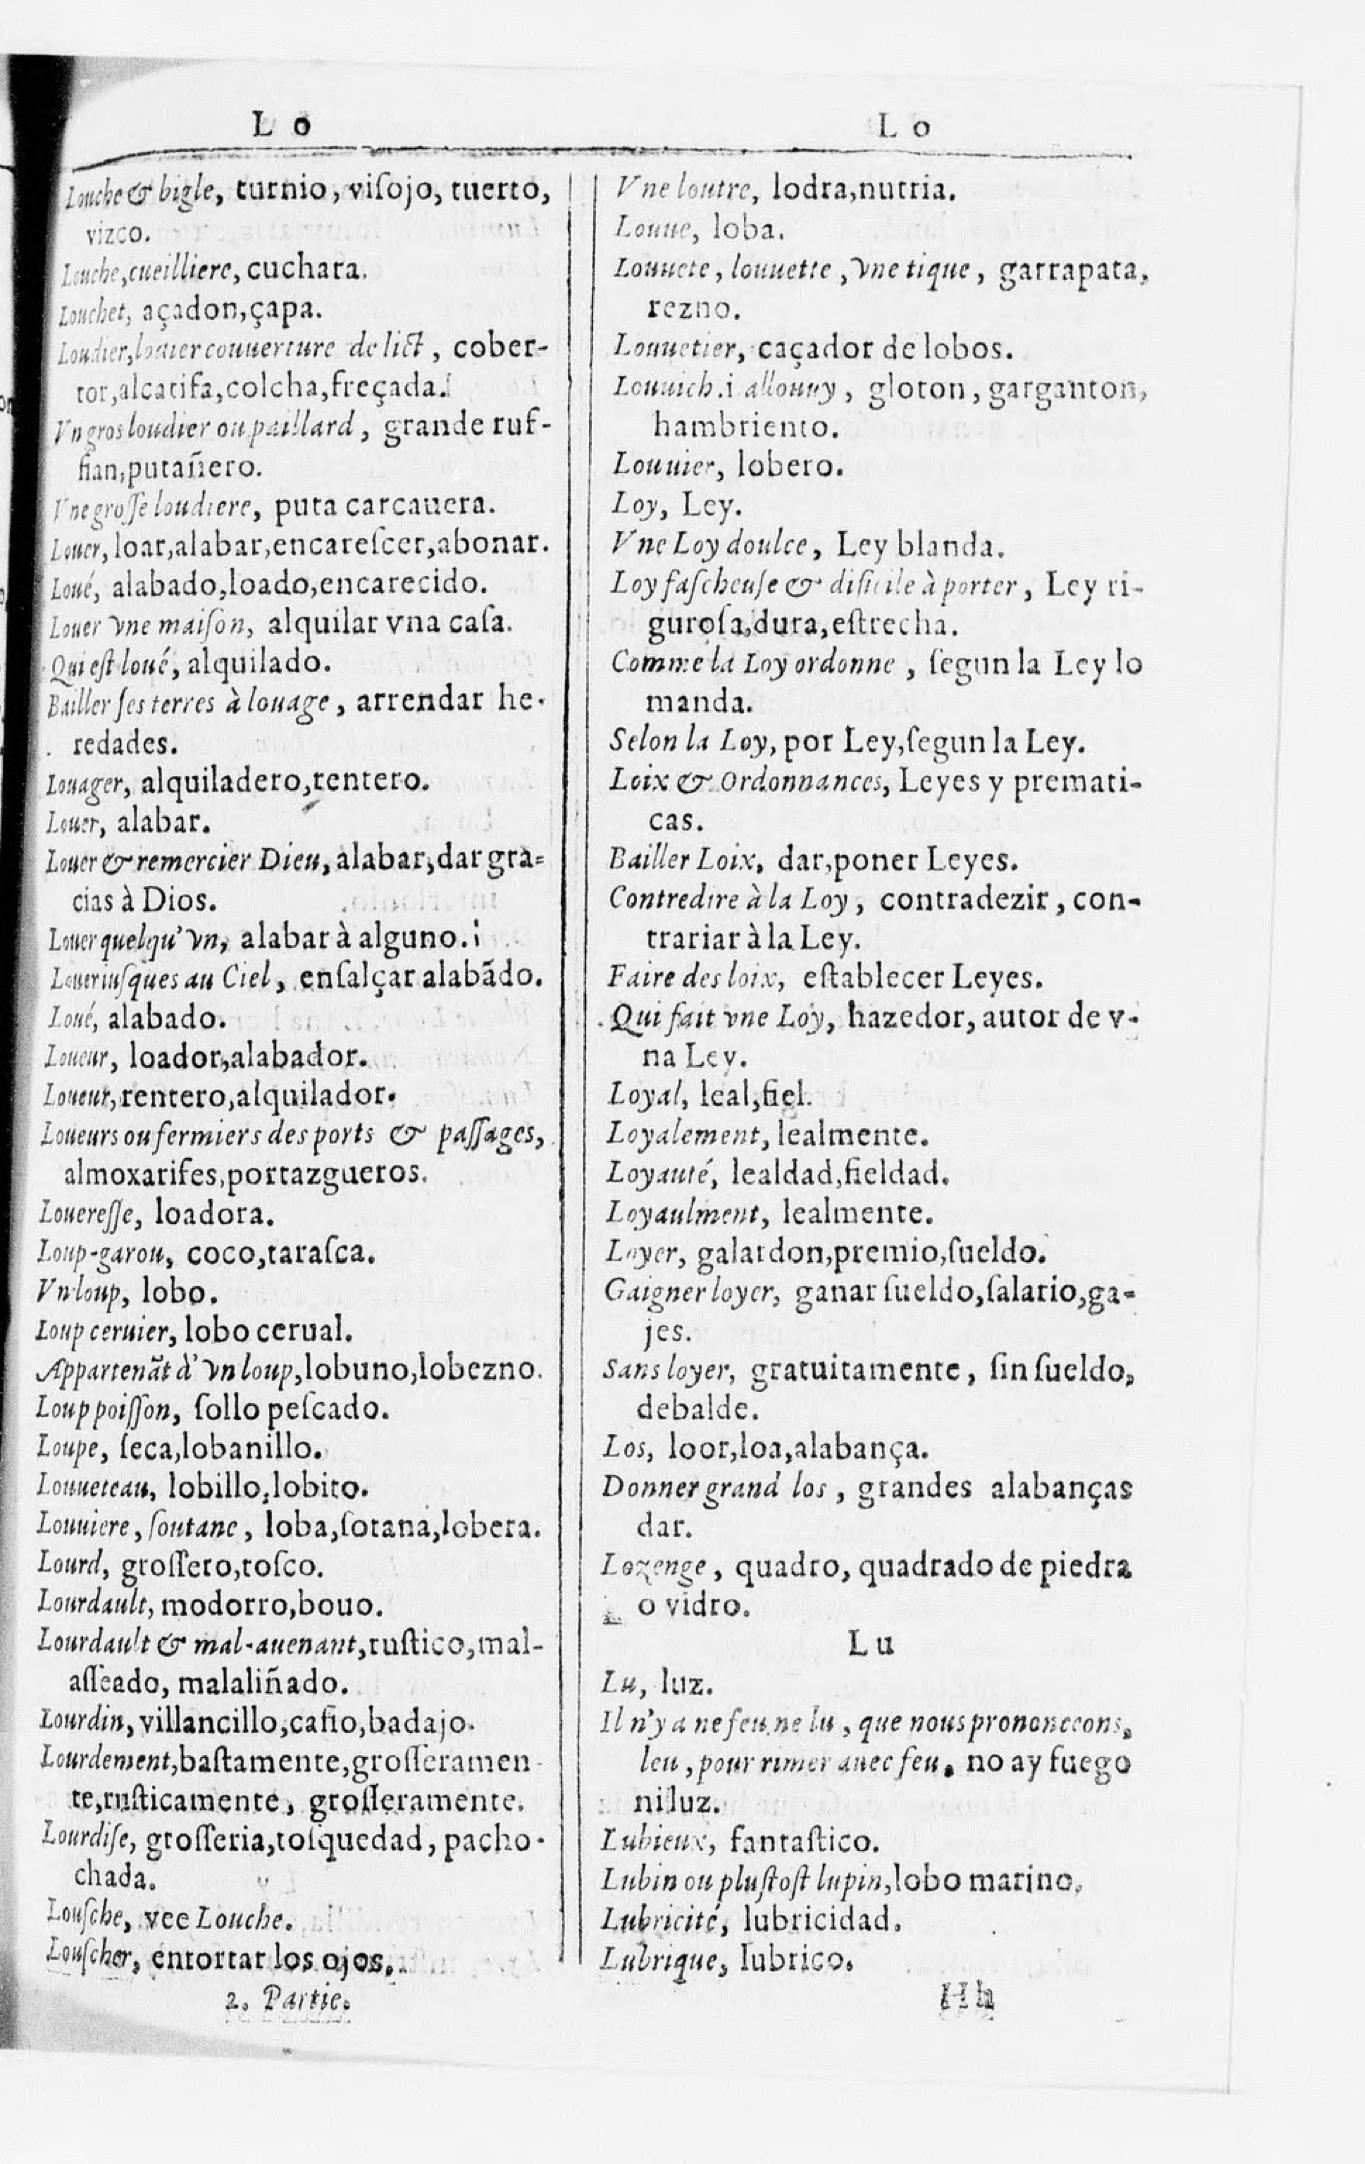 L o
Louche & bigle, turnio, viſojo, tuerto,
vizco.
Louche, cueilliere, cuchara.
Louchet, açadon, çapa.
Loudier, lodier couuerture de lict, cober-
tor, alcatifa, colcha, freçada.
Vn gros loudier ou paillard, grande ruf-
fian, putañero.
Vne groſſe loudiere, puta carcauera.
Louer, loar, alabar, encareſcer, abonar.
Loué, alabado, loado, encarecido.
Louer vne maiſon, alquilar vna caſa.
Qui eſt loué, alquilado.
Bailler ſes terres à louage, arrendar he-
redades.
Louager, alquiladero, rentero.
Louer, alabar.
Louer & remercier Dieu, alabar, dar gra-
cias à Dios.
Louer quelqu'vn, alabar à alguno.
Louer iuſques au Ciel, enſalçar alabãdo.
Loué, alabado.
Loueur, loador, alabador.
Loueur, rentero, alquilador.
Loueurs ou fermiers des ports & paſſages,
almoxarifes, portazgueros.
Louereſſe, loadora.
Loup-garou, coco, taraſca.
Vn loup, lobo.
Loup ceruier, lobo cerual.
Appartenãt à vn loup, lobuno, lobezno.
Loup poiſſon, ſollo peſcado.
Loupe, ſeca, lobanillo.
Louueteau, lobillo, lobito.
Louuiere, ſoutane, loba, ſotana, lobera.
Lourd, groſſero, toſco.
Lourdault, modorro, bouo.
Lourdault & mal-auenant, ruſtico, mal-
aſſeado, malaliñado.
Lourdin, villancillo, caſio, badajo.
Lourdement, baſtamente, groſſeramen-
te, ruſticamente, groſſeramente.
Lourdiſe, groſſeria, toſquedad, pacho-
chada.
Louſche, vee Louche.
Louſcher, entortar los ojos.
2. Partie.
L o
Vne loutre, lodra, nutria.
Louue, loba.
Louuete, louuette, vne tique, garrapata,
rezno.
Louuetier, caçador de lobos.
Louuich. i allouuy, gloton, garganton,
hambriento.
Louuier, lobero.
Loy, Ley.
Vne Loy doulce, Ley blanda.
Loy faſcheuſe & dificile à porter, Ley ri-
guroſa, dura, eſtrecha.
Comme la Loy ordonne, ſegun la Ley lo
manda.
Selon la Loy, por Ley, ſegun la Ley.
Loix & Ordonnances, Leyes y premati-
cas.
Bailler Loix, dar, poner Leyes.
Contredire à la Loy, contradezir, con-
trariar à la Ley.
Faire des loix, eſtablecer Leyes.
Qui fait vne Loy, hazedor, autor de v-
na Ley.
Loyal, leal, fiel.
Loyalement, lealmente.
Loyauté, lealdad, fieldad.
Loyaulment, lealmente.
Loyer, galardon, premio, ſueldo.
Gaigner loyer, ganar ſueldo, ſalario, ga-
jes.
Sans loyer, gratuitamente, ſin ſueldo,
debalde.
Los, loor, loa, alabança.
Donner grand los, grandes alabanças
dar.
Lozenge, quadro, quadrado de piedra
o vidro.
Lu
Lu, luz.
Il n'y a ne feu, ne lu, que nous prononceons,
leu, pour rimer auec feu, no ay fuego
ni luz.
Lubieux, fantaſtico.
Lubin ou pluſtoſt lupin, lobo marino.
Lubricité, lubricidad.
Lubrique, lubrico.
Hh